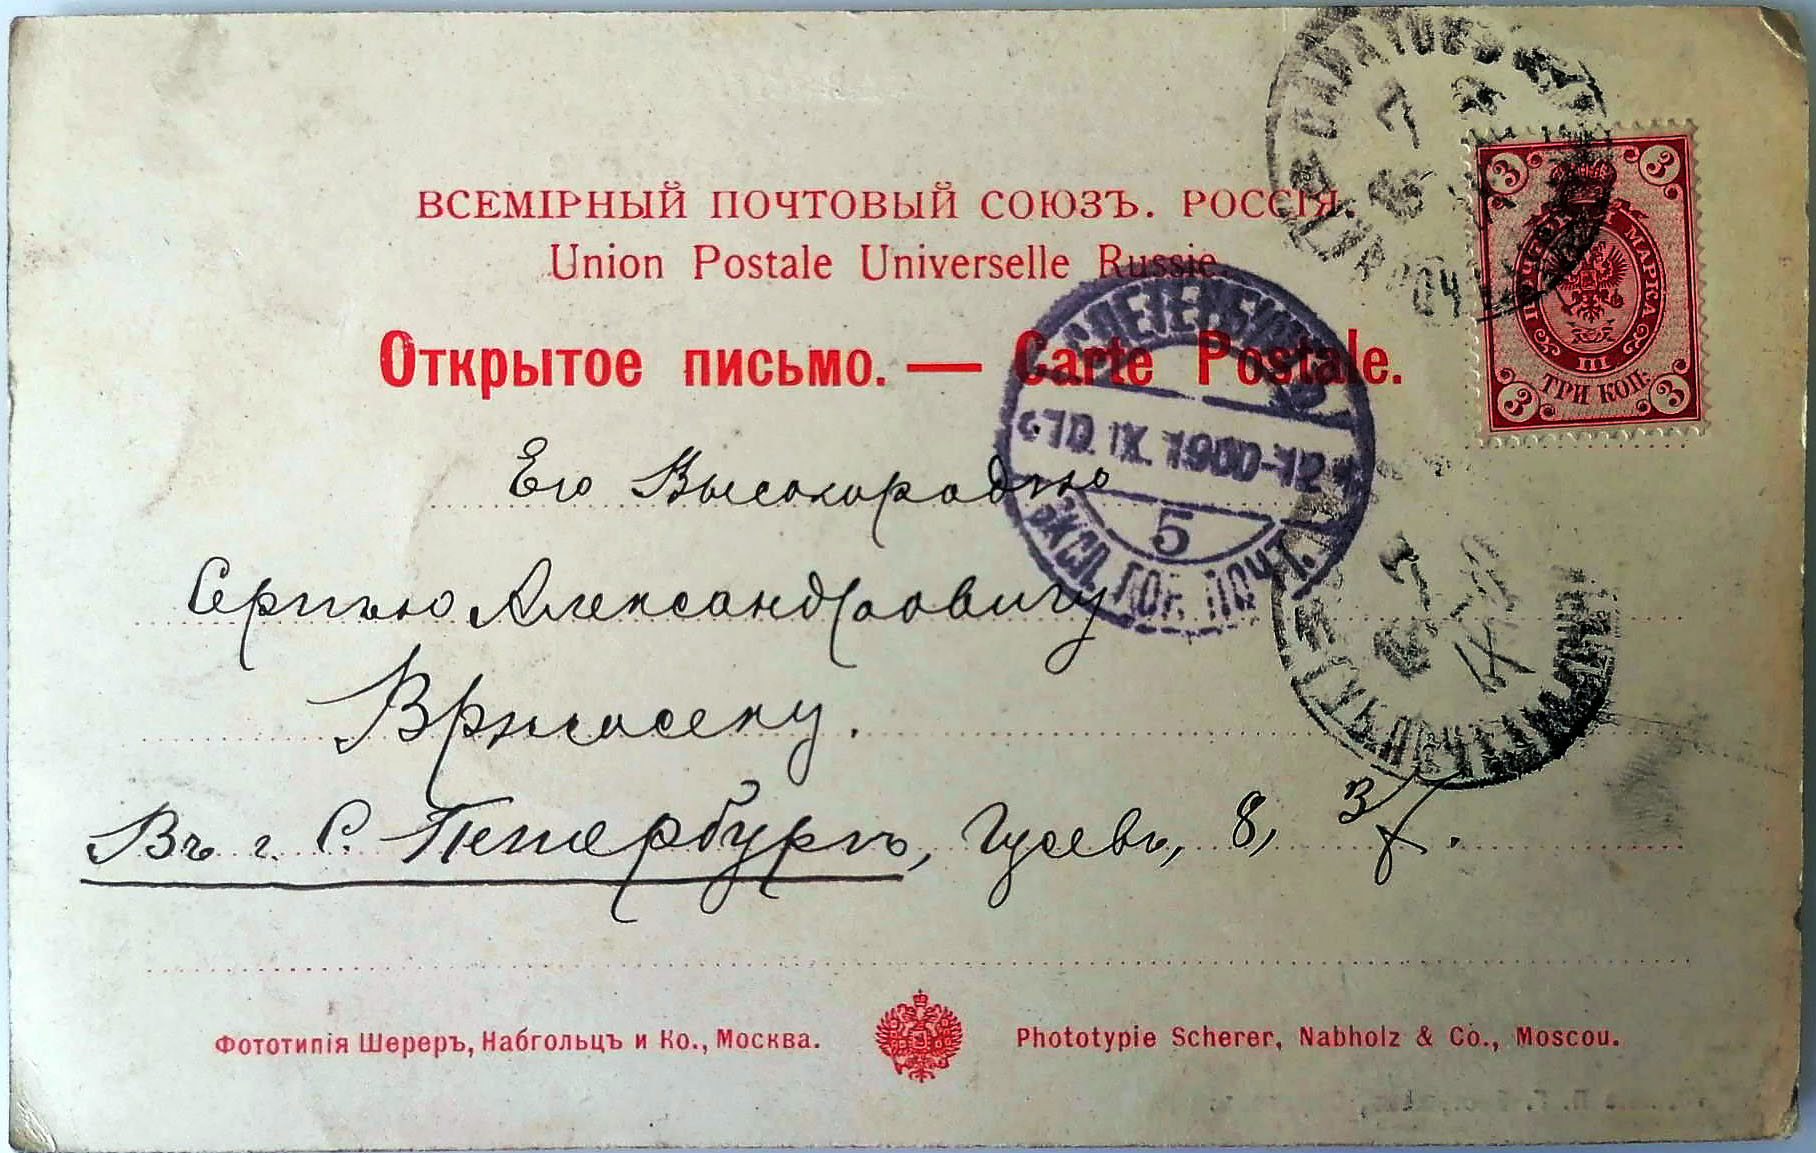 ВСЕМІРНЫЙ ПОЧТОВЫЙ СОЮЗЪ. РОССІЯ.
Union Postale Universelle Russie.
Открытое письмо. — Carte Postale.
3 3
ПОЧТОВАЯ МАРКА
III
ТРИ КОП.
3 3
10. IX. 1900-12
5
ЭКСП. ГОР. ПОЧТ.
7
IX
Его Высокородію
Сергѣю Александровичу
Вржосеку.
Въ г. С. Петербургъ, Гусевъ, 8,
Фототипія Шереръ, Набгольцъ и Ко., Москва.
Phototypie Scherer, Nabholz & Co., Moscou.